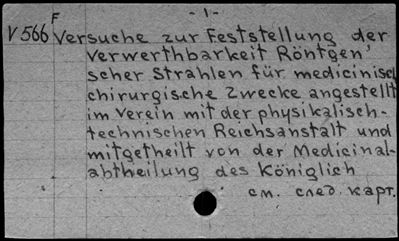 -1-
V 566 F Versuche zur Feststellung der
Verwerthbarkeit Röntgen'
scher Strahlen für medicinisch
chirurgische Zwecke angestellt
im Verein mit der physikalisch-
technischen Reichsanstalt und
mitgetheilt von der Medicinal-
abtheilung des Königlich
см. след. карт.